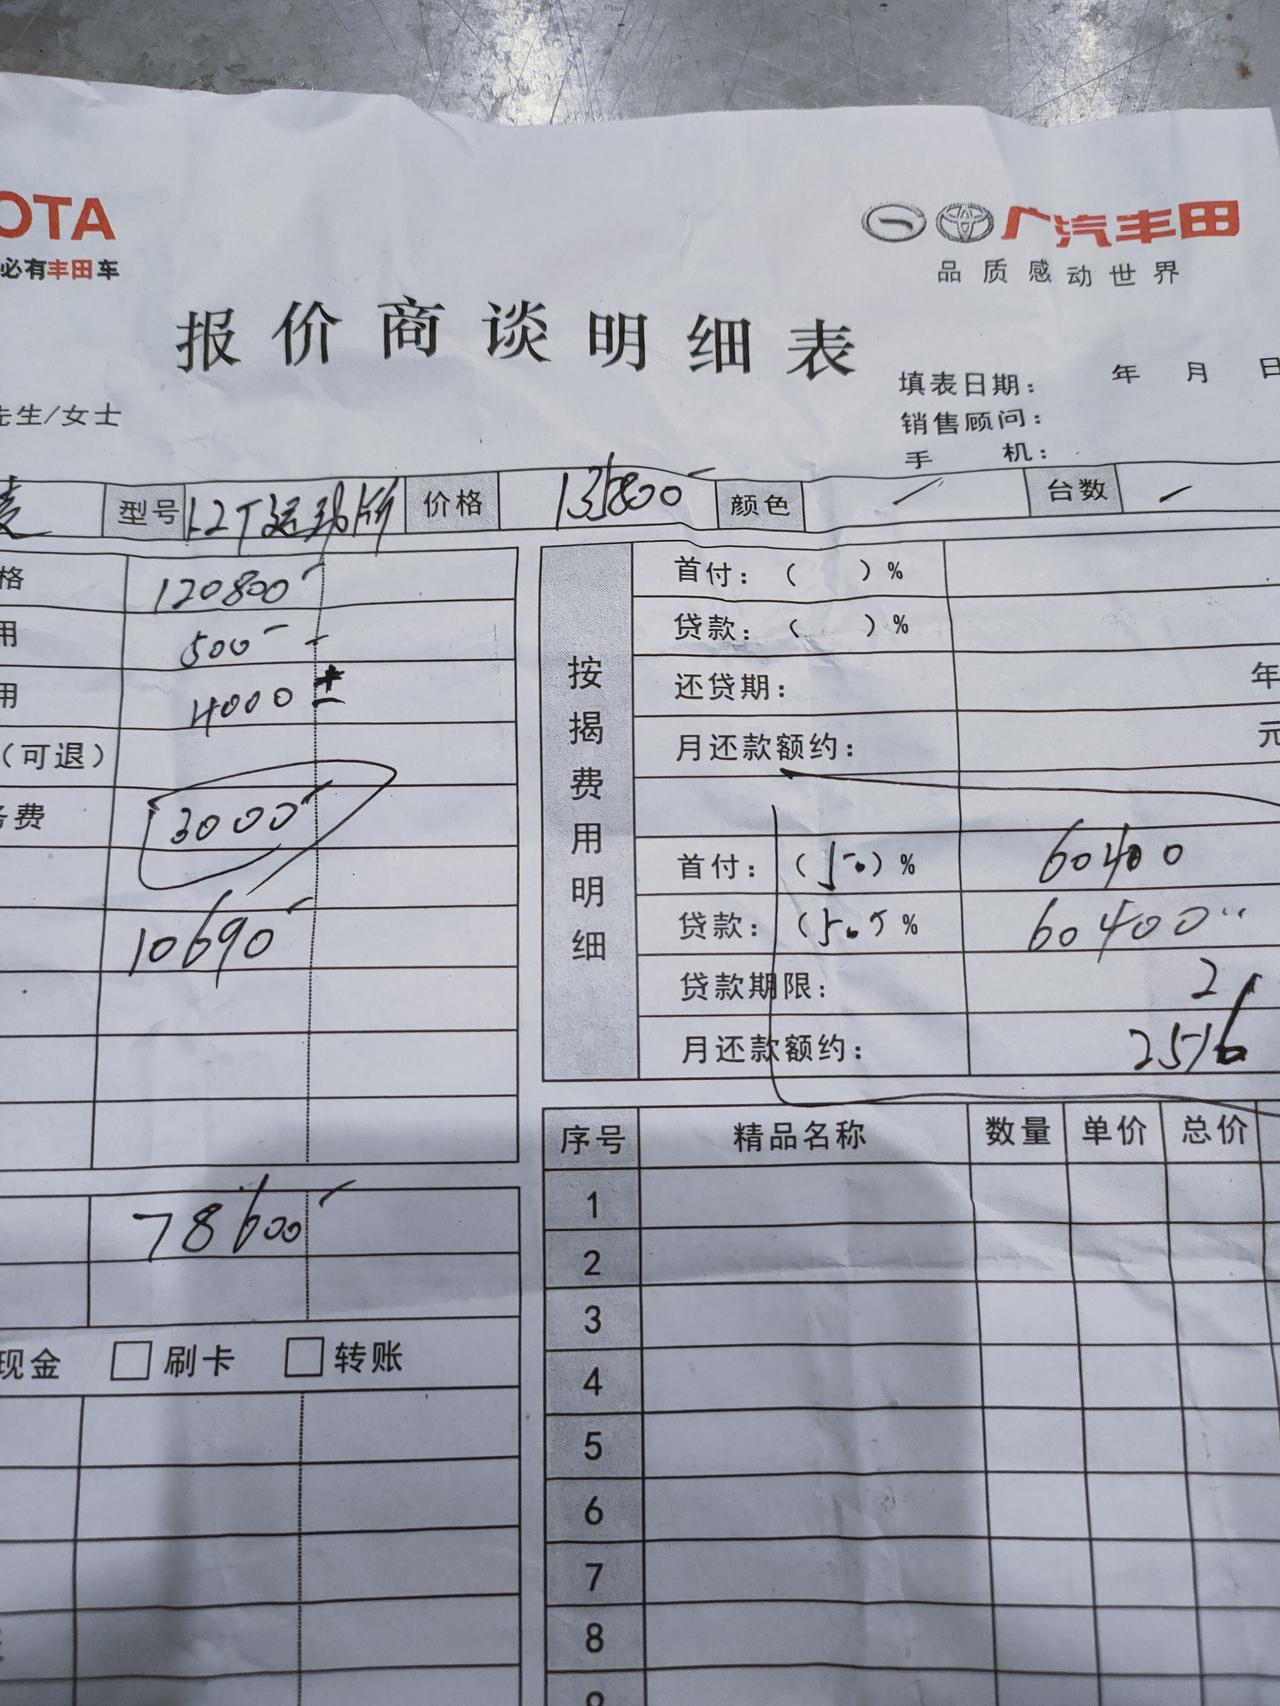 OTA
广汽丰田
必有丰田车
品质感动世界
报价商谈明细表
填表日期： 年 月 日
先生/女士
销售顾问：
手 机：
型号 1.2T运动版 价格 135800 颜色 台数
格 120800
首付：（ ）%
用 500
贷款：（ ）%
用 4000
还贷期： 年
（可退）
月还款额约： 元
务费 3000
按揭费用明细
首付：（50）% 60400
10690
贷款：（50）% 60400
贷款期限： 2
月还款额约： 2516
序号 精品名称 数量 单价 总价
1
78600
2
3
现金 刷卡 转账
4
5
6
7
8
9